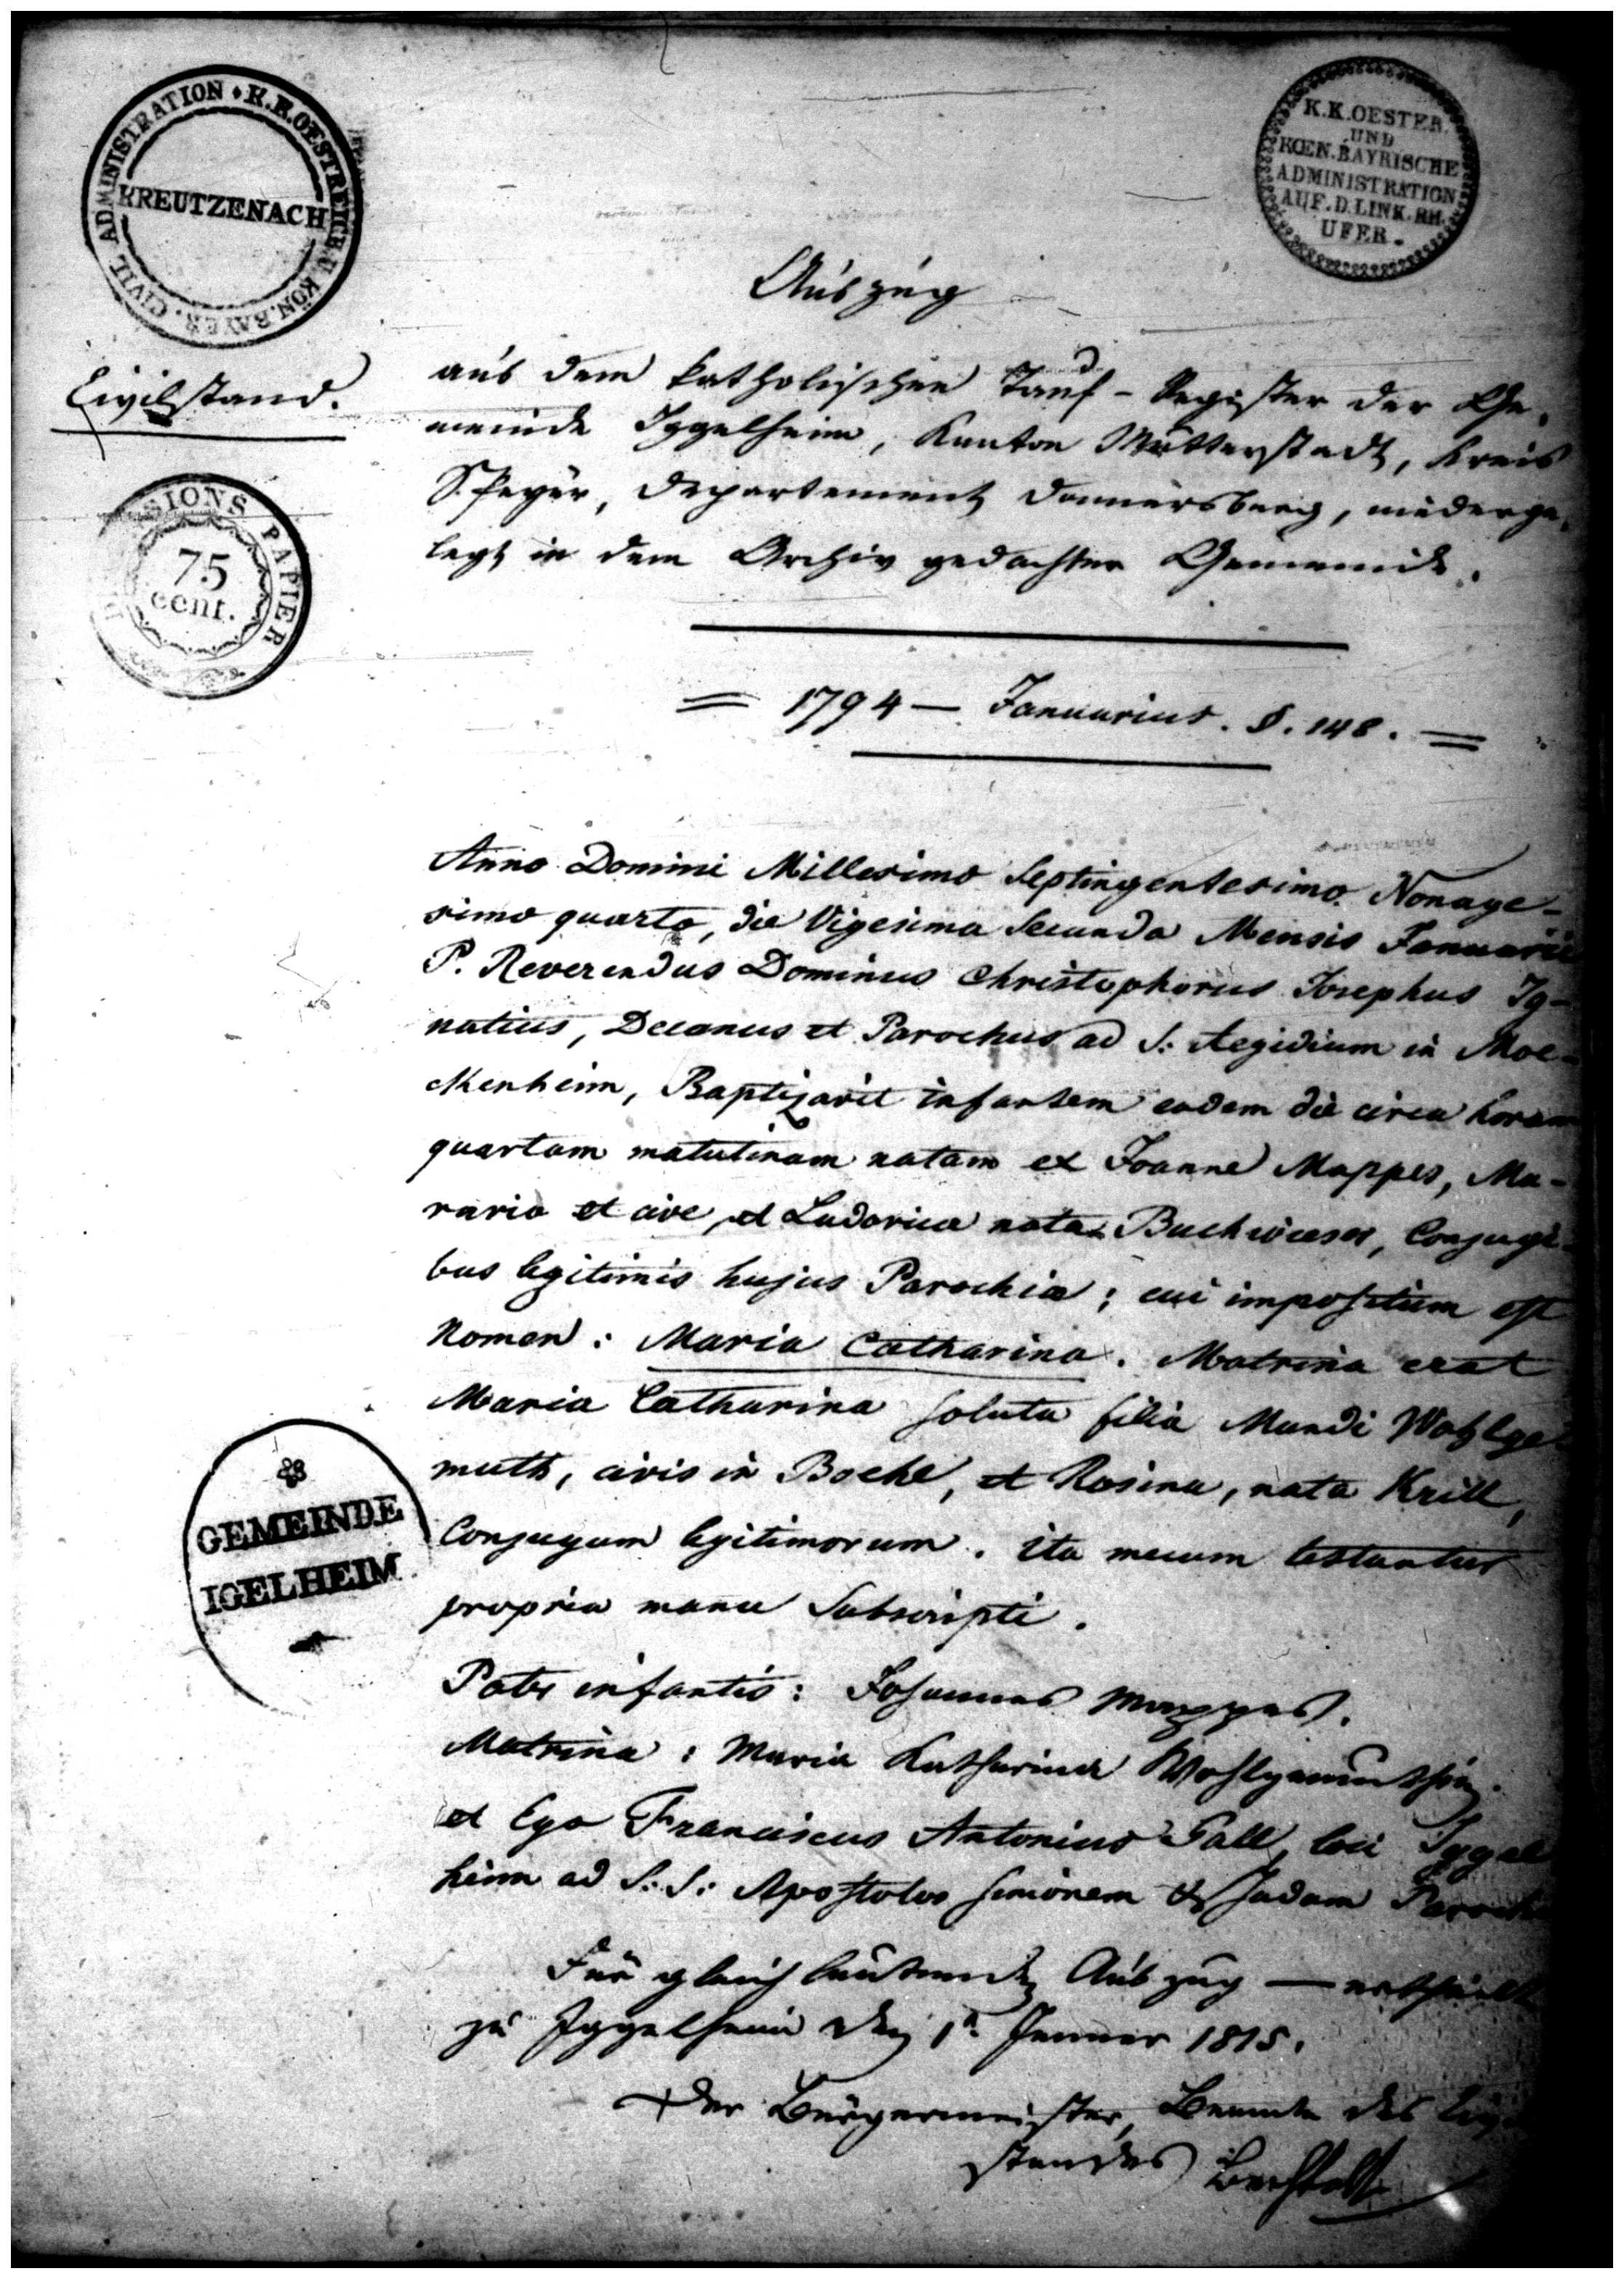 CIVIL ADMINISTRATION • K.K. OESTREICH. U. KÖN. BAYER.
KREUTZENACH
K.K. OESTER.
UND
KŒN. BAYRISCHE
ADMINISTRATION
AUF. D. LINK. RH.
UFER.
Auszug
Civilstand.
SIONS PAPIER
75
cent.
aus dem katholischen Tauf-Register der Ge-
meinde Iggelheim, Kanton Mutterstadt, Kreis
Speyer, Departement Donnersberg, niederge-
legt in dem Archiv gedachter Gemeinde.
= 1794 — Januarius. §. 148. =
Anno Domini Millesimo Septingentesimo Nonage-
simo quarto, die Vigesima Secunda Mensis Januarii
P. Reverendus Dominus Christophorus Josephus Ig-
natius, Decanus et Parochus ad S: Aegidium in Moe-
ckenheim, Baptizavit infantem eadem die circa horam
quartam matutinam natam ex Joanne Mappes, Mu-
rario et cive, et Ludovica nata Buchwieser, Conjugi-
bus legitimis hujus Parochiæ; cui impositum est
Nomen: Maria Catharina. Matrina erat
Maria Catharina soluta filia Mundi Wohlge-
muth, civis in Boehl, et Rosina, nata Krill,
Conjugum legitimorum. ita mecum testantur
propria manu Subscripti.
GEMEINDE
IGELHEIM
Pater infantis: Johannes Mappes.
Matrina: Maria Katharina Wohlgemuthin.
et Ego Franciscus Antonius Gall, loci Iggel
heim ad S: S: Apostolos Simonem & Judam Paroch
Für gleich lautenden Auszug — ertheilt
zu Iggelheim den 1n. Jenner 1815.
Der Bürgermeister, Beamte des Civil
standes